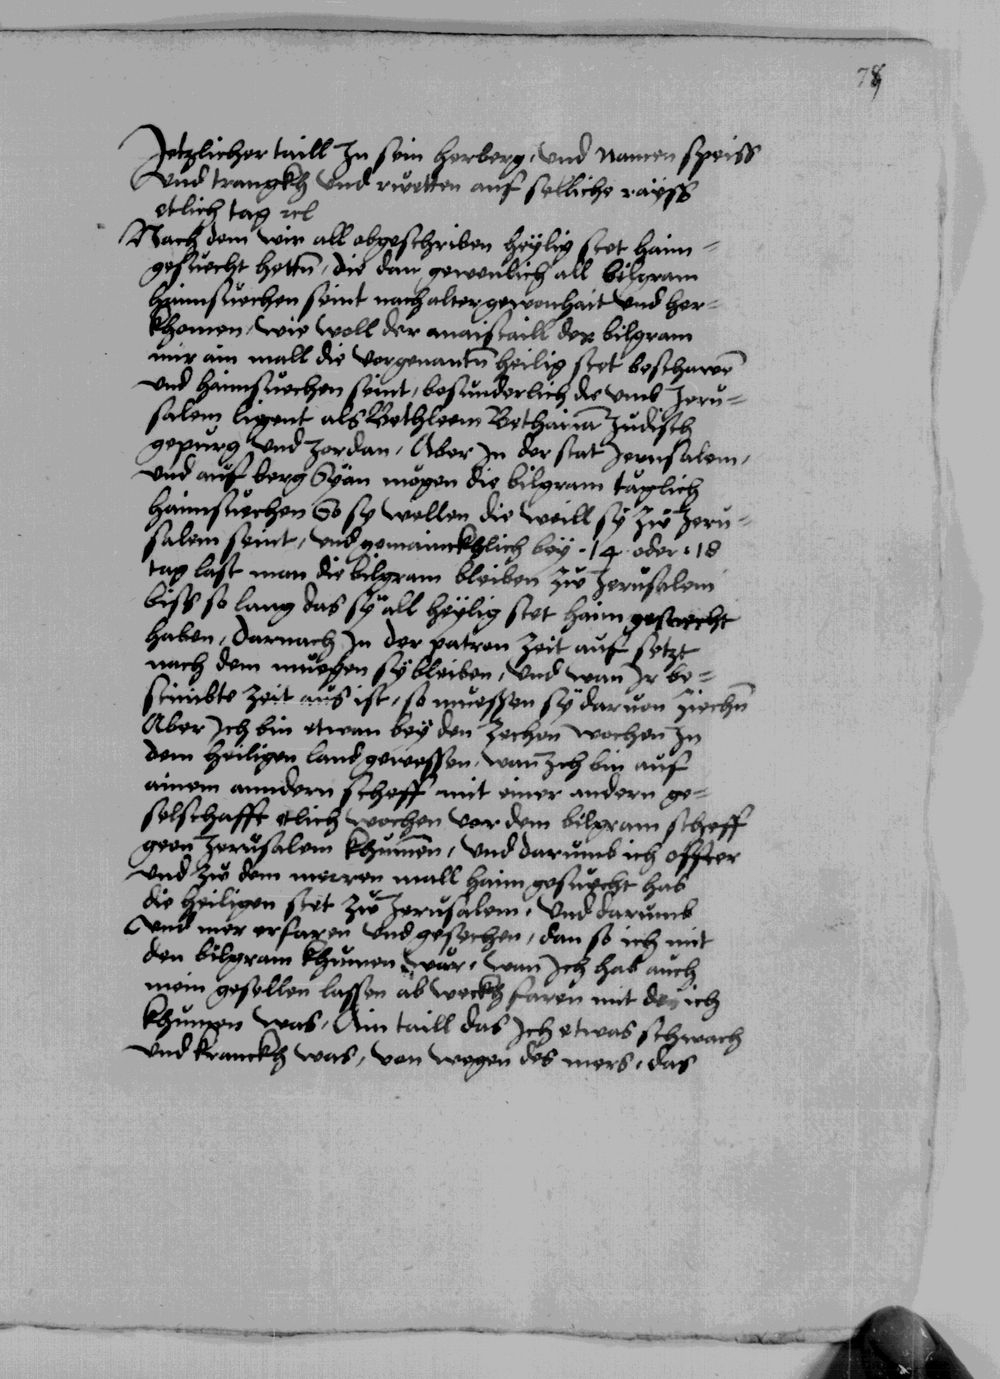 78
Jetzlicher taill In sein herberg, und namen speiss
und trangkh und rwetten auf selliche rayss
etlich tag rcl
Nach dem wir all obgeschriben heÿlig stet haim=
gesuecht hettn, die dan gewenlich all bilgram
haimsuechen seint nach alter gewonhait und her=
khomen, wie woll der maistaill der bilgram
nur ain mall die vorgenantn heilig stet beschawen
und haimsuechen seint, besunderlich die umb Jeru=
salem ligent als Bethleem Bethania Judisch
gepurg und Jordan, Aber In der stat Jerusalem,
und auf berg Syan mögen die bilgram täglich
haimsuechen So sy wellen die weill sÿ zw Jeru=
salem seint, und gemaincklich beÿ .14. oder .18
tag last man die bilgram bleiben zw Jerusalem
biss so lang das sÿ all heÿlig stet haim gesuecht
haben, Darnach In der patron Zeit auf setzt
nach dem muessen sÿ bleiben, und wan Ir be=
stimbte zeit aus ist, so muessen sÿ daruon ziechn
Aber Ich bin etwan beÿ den Zechen wochen In
dem heiligen land gewessen, wan Ich bin auf
ainem anndern scheff mit einer andern ge=
selschafft etlich wochen vor dem bilgram scheff
geen Jerusalem khumen, und darumb ich offter
und zw dem merren mall haim gesuecht hab
die heiligen stet zw Jerusalem, Und darumb
Und mer erfaren und gesechen, dan so ich mit
den bilgram khumen wär, wan Ich hab auch
mein gesellen lassen ab weckh faren mit den ich
khumen was, Ain taill das Ich etwas schwach
und kranckh was, von wegen des mers, das